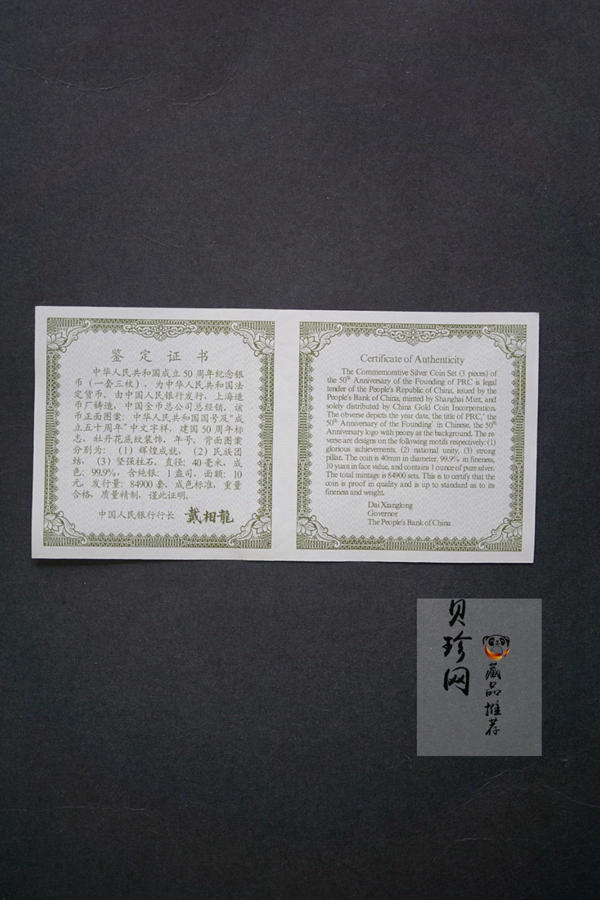 鉴定证书
中华人民共和国成立50周年纪念银
币（一套三枚），为中华人民共和国法
定货币，由中国人民银行发行，上海造
币厂铸造，中国金币总公司总经销。该
币正面图案：中华人民共和国国号及“成
立五十周年”中文字样，建国50周年标
志，牡丹花底纹装饰，年号。背面图案
分别为：(1) 辉煌成就，(2) 民族团
结，(3) 坚强柱石。直径：40毫米，成
色：99.9%，含纯银：1盎司，面额：10
元，发行量：84900套，成色标准，重量
合格，质量精制，谨此证明。
中国人民银行行长 戴相龍
Certificate of Authenticity
The Commemorative Silver Coin Set (3 pieces) of
the 50th Anniversary of the Founding of PRC is legal
tender of the People's Republic of China, issued by the
People's Bank of China, minted by Shanghai Mint, and
solely distributed by China Gold Coin Incorporation.
The obverse depicts the year date, the title of PRC,' the
50th Anniversary of the Founding' in Chinese, the 50th
Anniversary logo with peony at the background. The re
verse are designs on the following motifs respectively: (1)
glorious achievements, (2) national unity, (3) strong
pillar. The coin is 40mm in diameter, 99.9% in fineness,
10 yuan in face value, and contains 1 ounce of pure silver.
The total mintage is 84900 sets. This is to certify that the
coin is proof in quality and is up to standard as to its
fineness and weight.
Dai Xianglong
Governor
The People's Bank of China
贝珍网
藏品推荐